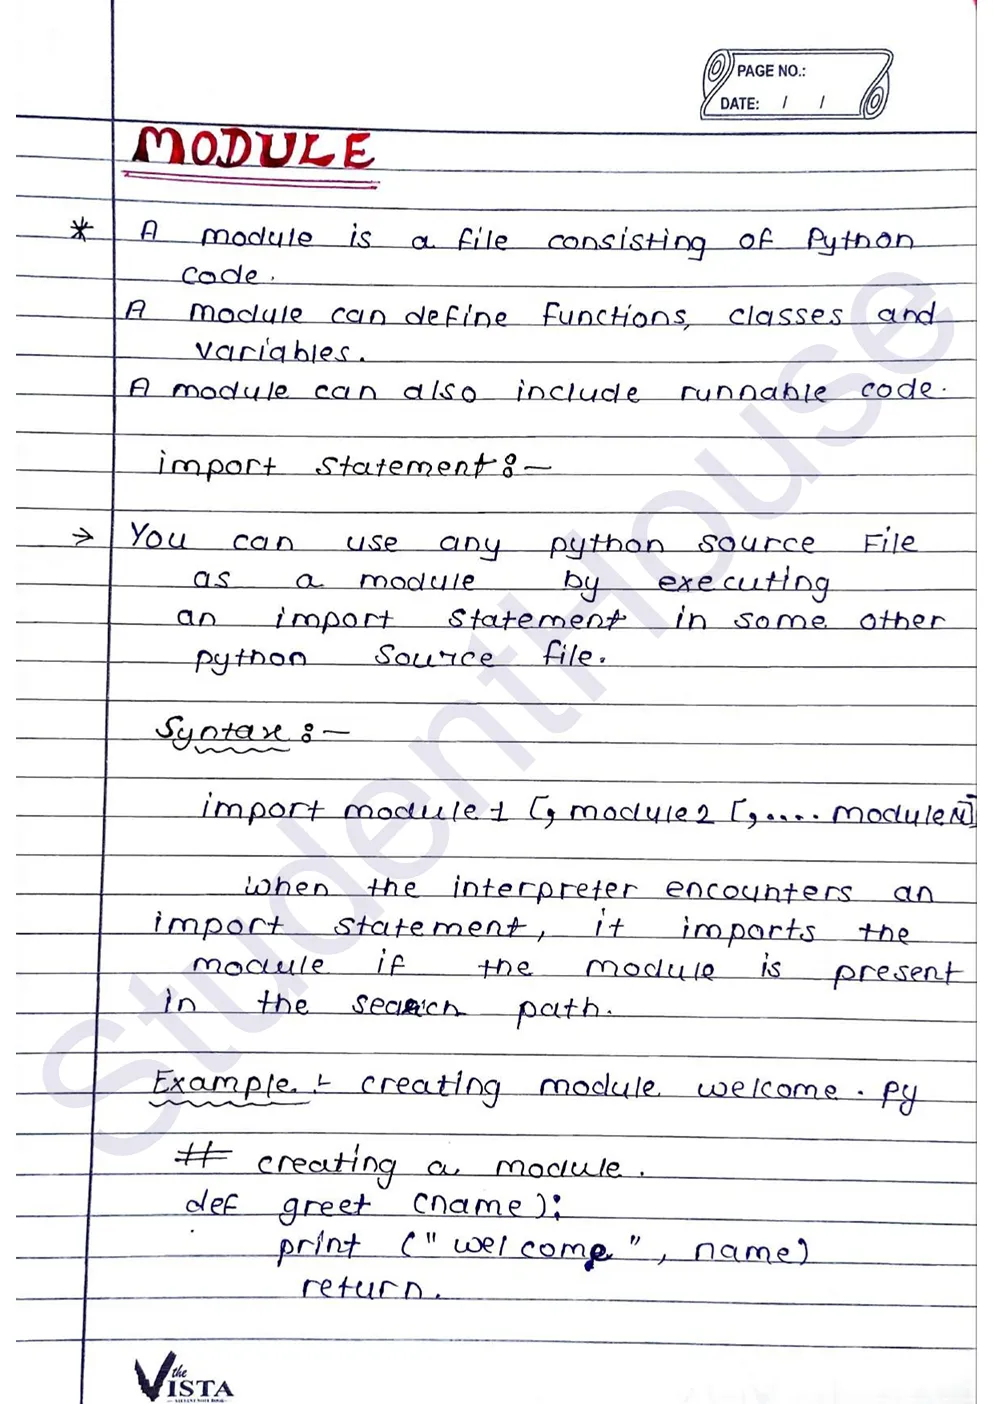 PAGE NO.:
DATE: / /
MODULE
* A module is a file consisting of Python
code.
A module can define functions, classes and
variables.
A module can also include runnable code.
import statement:-
→ You can use any python source file
as a module by executing
an import statement in some other
python source file.
Syntax:-
import module1 [, module2 [,.... moduleN]
when the interpreter encounters an
import statement, it imports the
module if the module is present
in the search path.
Example:- creating module welcome.py
# creating a module.
def greet (name):
print ("welcome", name)
return.
the
VISTA
StudentHouse